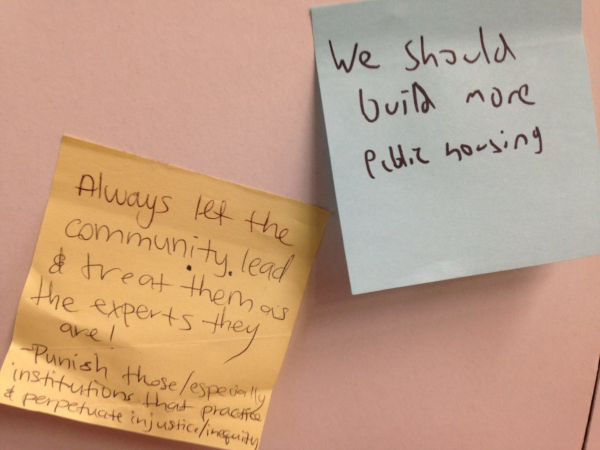 We should
build more
public housing
Always let the
community lead
& treat them as
the experts they
are!
-Punish those/especially
institutions that practice
& perpetuate injustice/inequity